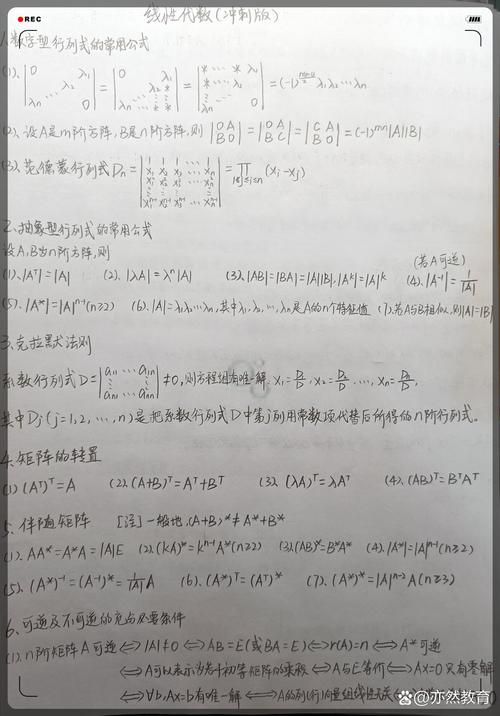 REC
线性代数(冲刺版)
1.数字型行列式的常用公式
(1). |0 λ₁ ⋰ λ₂ λₙ 0| = |0 λ₁ λ₂ * λₙ … * *| = |* … * λ₁ * … λ₂ λₙ 0| = (-1)^{n(n-1)/2} λ₁λ₂…λₙ
(2). 设A是m阶方阵,B是n阶方阵,则 |0 A; B 0| = |0 A; B C| = |C A; B 0| = (-1)^{mn}|A||B|
(3). 范德蒙行列式 Dₙ = |1 1 1 … 1; x₁ x₂ x₃ … xₙ; x₁² x₂² x₃² … xₙ²; ⋮ ⋮ ⋮ ⋮; x₁ⁿ⁻¹ x₂ⁿ⁻¹ x₃ⁿ⁻¹ … xₙⁿ⁻¹| = ∏_{1≤j≤i≤n} (xᵢ-xⱼ)
2.抽象型行列式的常用公式
设A,B为n阶方阵,则
(若A可逆)
(1).|Aᵀ|=|A| (2).|λA|=λⁿ|A| (3).|AB|=|BA|=|A||B|,|Aᵏ|=|A|ᵏ (4).|A⁻¹|=1/|A|
(5).|A*|=|A|ⁿ⁻¹(n≥2) (6).|A|=λ₁λ₂…λₙ,其中λ₁,λ₂,…,λₙ是A的n个特征值 (7).若A与B相似,则|A|=|B|
3.克拉默法则
系数行列式D=|a₁₁ … a₁ₙ; ⋮ ⋮; aₙ₁ … aₙₙ|≠0,则方程组有唯一解. x₁=D₁/D, x₂=D₂/D, …, xₙ=Dₙ/D,
其中Dⱼ(j=1,2,…,n)是把系数行列式D中第j列用常数项代替后所得的n阶行列式。
4.矩阵的转置
(1) (Aᵀ)ᵀ=A (2).(A+B)ᵀ=Aᵀ+Bᵀ (3). (λA)ᵀ=λAᵀ (4).(AB)ᵀ=BᵀAᵀ
5.伴随矩阵 [注]一般地,(A+B)*≠A*+B*
(1).AA*=A*A=|A|E (2).(kA)*=kⁿ⁻¹A*(n≥2) (3).(AB)*=B*A* (4).|A*|=|A|ⁿ⁻¹(n≥2)
(5).(A*)⁻¹=(A⁻¹)*=1/|A| A (6).(A*)ᵀ=(Aᵀ)* (7).(A*)*=|A|ⁿ⁻²A(n≥3)
6.可逆及不可逆的充分必要条件
(1).n阶矩阵A可逆⟺|A|≠0⟺AB=E(或BA=E)⟺r(A)=n⟺A*可逆
⟺A可以表示为若干初等矩阵的乘积⟺A与E等价⟺AX=0只有零解
⟺∀b,Ax=b有唯一解⟺A的列(行)向量组线性无关⟺
百家号/亦然教育